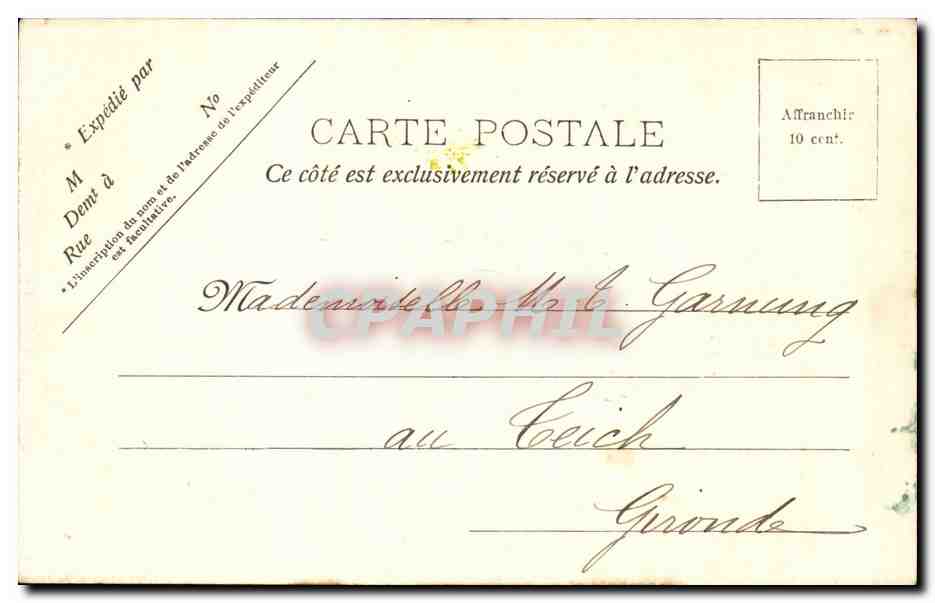 * Expédié par
M
Demt à
Rue No
* L'inscription du nom et de l'adresse de l'expéditeur
est facultative.
CARTE POSTALE
Ce côté est exclusivement réservé à l'adresse.
Affranchir
10 cent.
Mademoiselle M. T. Garnung
CPAPHIL
au Teich
Gironde